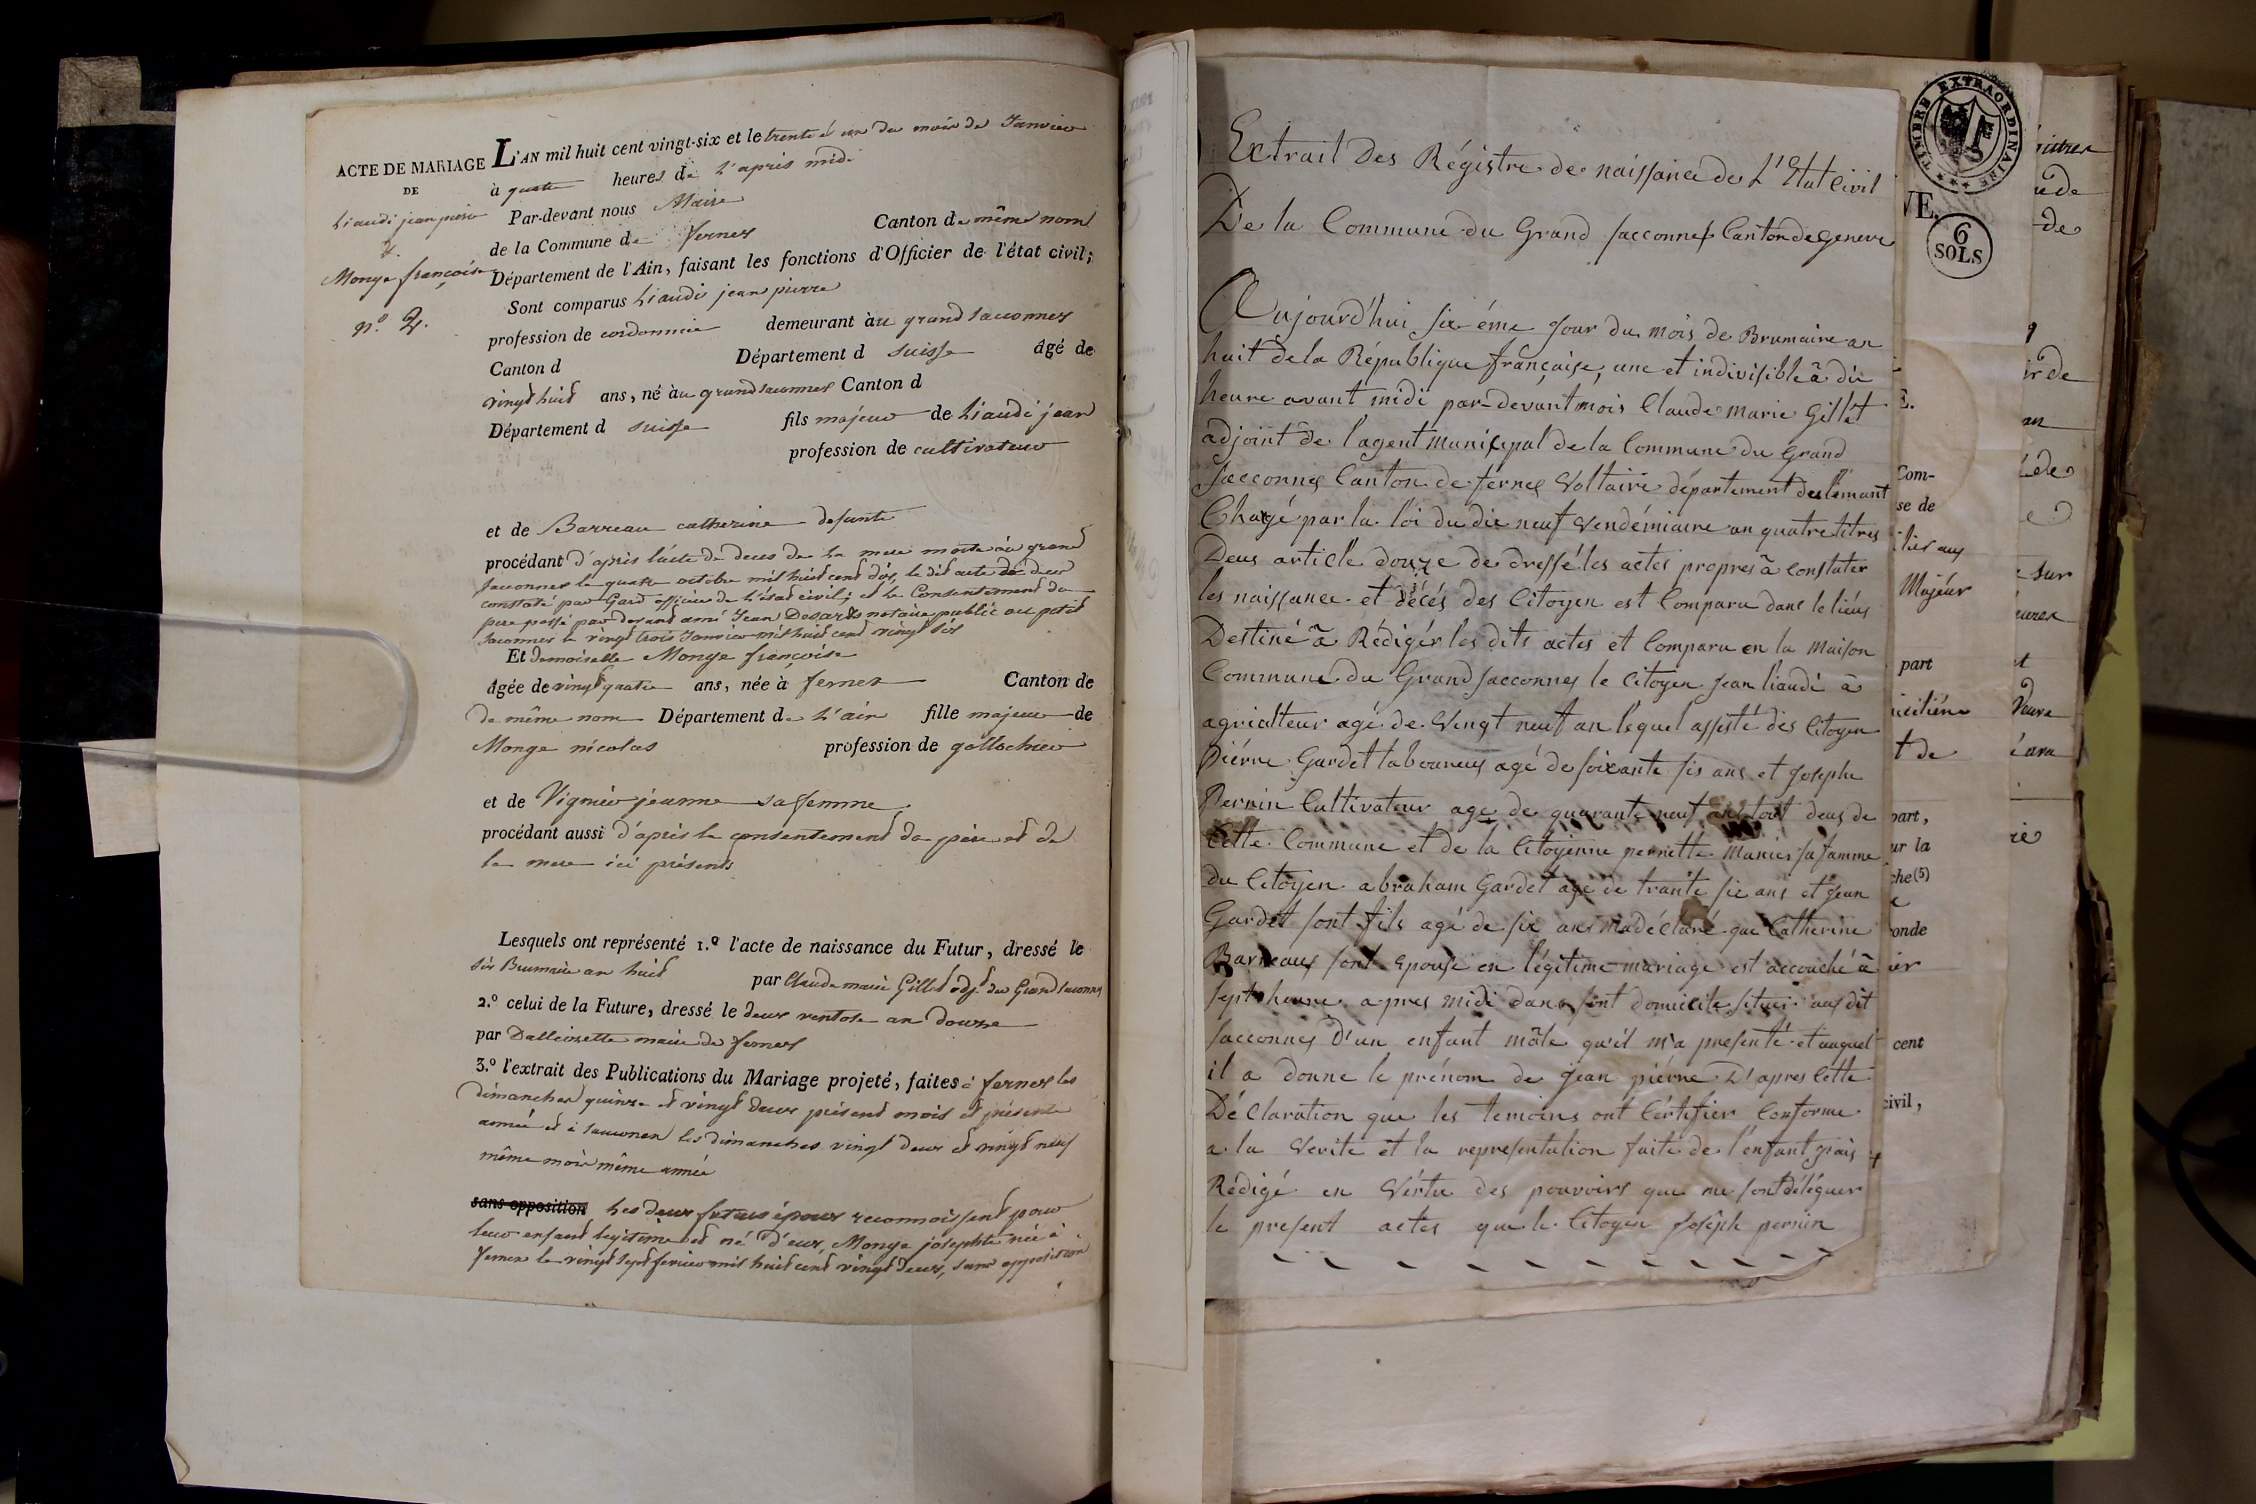 ACTE DE MARIAGE
DE
Liaudi jean pierre
&
Monge françoise
n.º 2.
L'AN mil huit cent vingt-six et le trente et un du mois de Janvier
à quatre heures de l'apres midi
Par-devant nous Maire
de la Commune de fernex Canton de même nom
Département de l'Ain, faisant les fonctions d'Officier de l'état civil;
Sont comparus Liaudi jean pierre
profession de cordonnier demeurant àu grand saconnex
Canton d Département d suisse âgé de
vingt huit ans, né àu grand saconnex Canton d
Département d suisse fils majeur de Liaudi jean
profession de cultivateur
et de Barreau catherine defunte
procédant d'après l'acte de deces de la mere morte àu grand
saconnex le quatre octobre mil huit cent dix, le dit acte de deces
constaté par Gard officier de l'état civil; et le Consentement du
pere passé par devant amé Jean Desarts notaire public au petit
saconnex le vingt trois Janvier mil huit cent vingt six
Et demoiselle Monge françoise
âgée de vingt quatre ans, née à fernex Canton de
de même nom Département de L'ain fille majeure de
Monge nicolas profession de
et de Vignier jeanne sa femme
procédant aussi d'après le consentement du père et de
la mere ici présents
Lesquels ont représenté 1.º l'acte de naissance du Futur, dressé le
six Brumaire an huit par Claude marie Gillet adj. du Grand saconnex
2.º celui de la Future, dressé le deux ventose an douze
par Dalloisette maire de fernex
3.º l'extrait des Publications du Mariage projeté, faites à fernex les
dimanches quinze et vingt deux présent mois et présente
année et à saconnex les dimanches vingt deux et vingt neuf
même mois même année
sans opposition Les deux futurs époux reconnoissent pour
leur enfant légitime et né d'eux, Monge josephte née à
fernex le vingt sept fevrier mil huit cent vingt deux, sans opposition
Extrait Des Régistre de naissance de L'Etat Civil
De la Commune du Grand Sacconnex Canton de Geneve
Aujourd'hui sixéme Jour du mois de Brumaire an
huit de la République française, une et indivisible â dix
heure avant midi par-devant mois Claude Marie Gillet
adjoint de l'agent municipal de la Commune du Grand
Sacconnex Canton de fernex Voltaire département du leman
Chargé par la loi du dix neuf Vendémiaire an quatre titres
Deux article douze de dressé les actes propres â Constater
les naissance et décés des Citoyen est Comparu dans le lieus
Destiné â Rédigér les dits actes et Comparu en la Maison
Commune du Grand Sacconnex le Citoyen Jean liaudi â
agriculteur agé de Vingt neuf an lequel assisté des Citoyen
piérre Gardet laboureur agé de soixante six ans et Joseph
Pernin Cultivateur agé de quarante neuf ans tout deux de
Cette Commune et de la Citoyenne pernette Manier sa famme
du Citoyen abraham Gardet agé de trante six ans et Jean
Gardet sont fils agé de six ans madéclaré que Catherine
Barreaux sont Epouse en légitime mariage est accouché â
sept heure apres midi dans sont domicile situé audit
Sacconnex D'un enfant mâle qu'il m'a presenté et auquel
il a donne le prénom de Jean piérre D'apres Cette
Déclaration que les temoins ont Certifier Conforme
a la Verité et la representation faite de l'enfant j'ais
Rédigé en Vértu des pouvoirs que me sont déléguer
le present actes que le Citoyen Joseph pernin
TIMBRE EXTRAORDINAIRE
6
SOLS
VE.
E.
Com-
se de
Majeur
part
t de
part,
ur la
che (5)
onde
cent
civil,